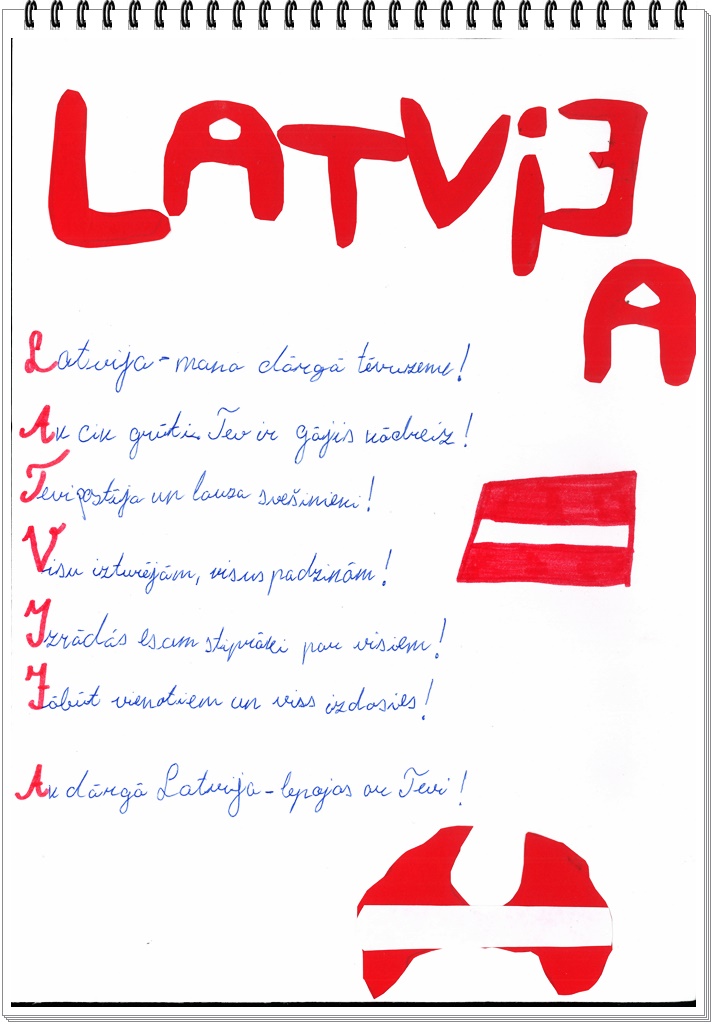 LATVIJA
Latvija - mana dārgā tēvuzeme!
Ak cik grūti Tev ir gājis kādreiz!
Tevi postīja un lauza svešinieki!
Visu izturējām, visus padzinām!
Izrādās esam stiprāki par visiem!
Jābūt vienotiem un viss izdosies!
Ak dārgā Latvija - lepojos ar Tevi!